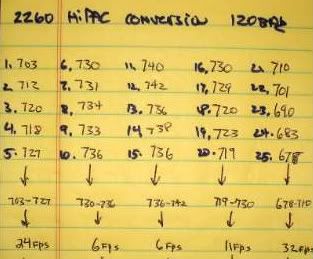 2260 HiPAC conversion 120 BAR
1. 703 6. 730 11. 740 16. 730 21. 710
2. 712 7. 731 12. 742 17. 729 22. 701
3. 720 8. 734 13. 736 18. 720 23. 690
4. 718 9. 733 14. 738 19. 723 24. 683
5. 727 10. 736 15. 736 20. 719 25. 678
703-727 730-736 736-742 719-730 678-710
24 FPS 6 FPS 6 FPS 11 FPS 32 FPS